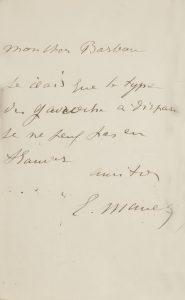 mon cher Barbou
je crois que le type
du gavroche a disparu
je ne peux pas en
amitiés
E. Manet